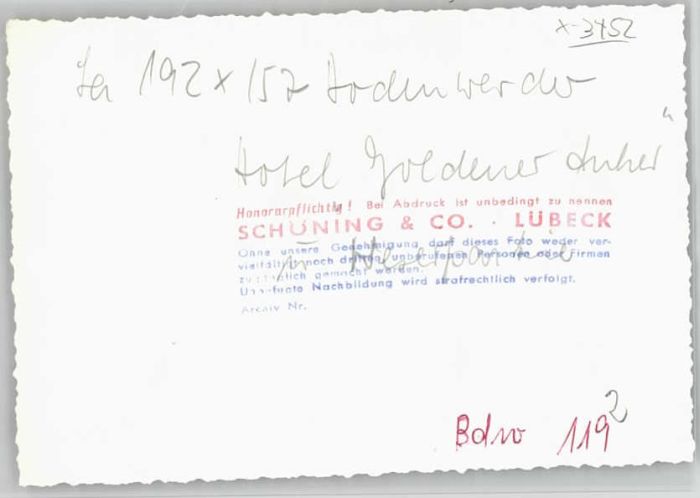 x-3452
192 x 157 Bodenwerder
Hotel Goldener Anker"
Honorarpflichtig! Bei Abdruck ist unbedingt zu nennen
SCHÖNING & CO. · LÜBECK
Ohne unsere Genehmigung darf dieses Foto weder ver-
vielfältigt noch dritten, unberufenen Personen oder Firmen
zugänglich gemacht werden.
Unbefugte Nachbildung wird strafrechtlich verfolgt.
Archiv Nr.
Weserpartie
Bdw 119 2